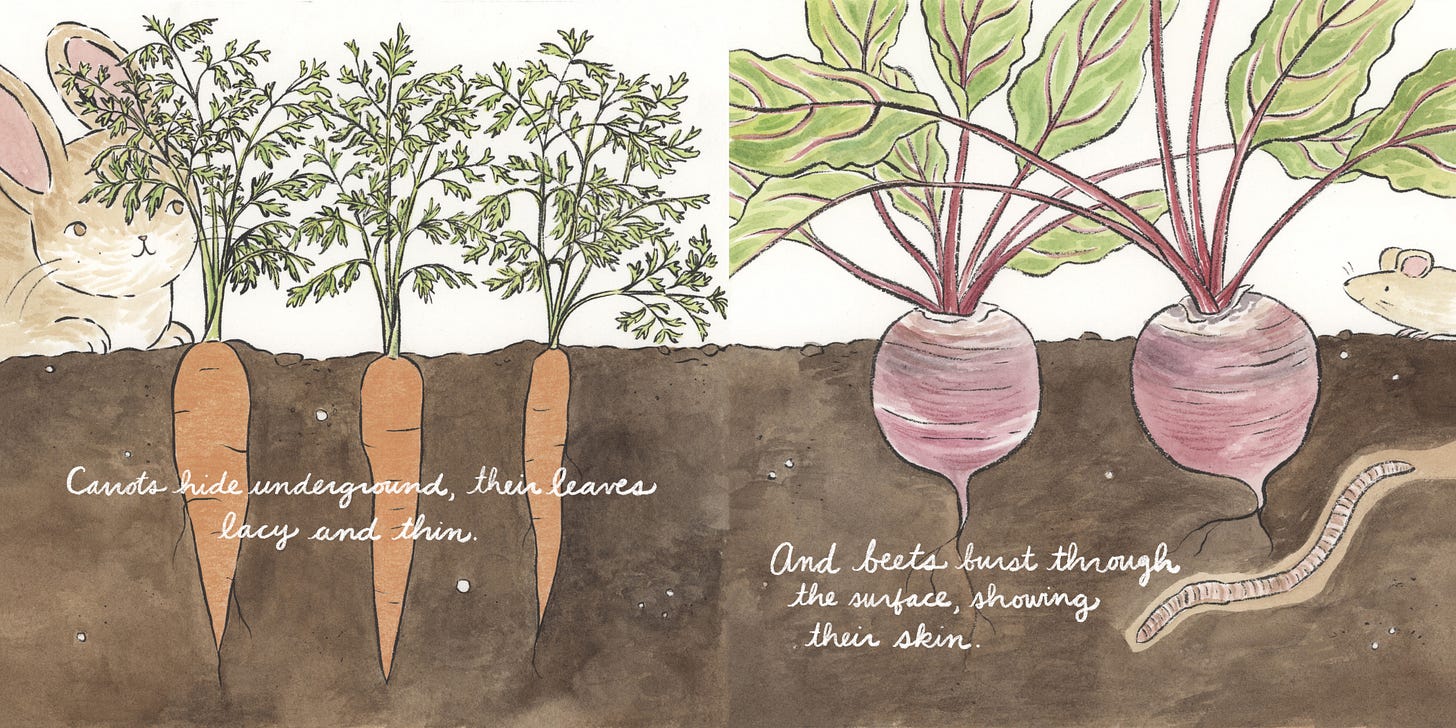 Carrots hide underground, their leaves
lacy and thin.
And beets burst through
the surface, showing
their skin.